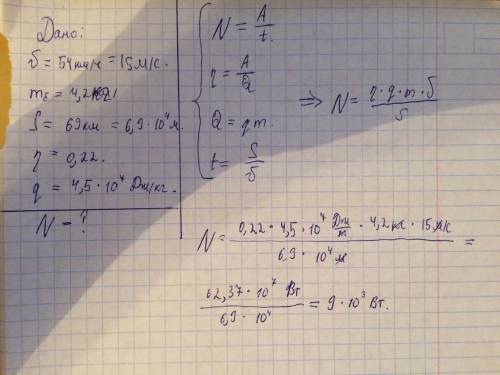 Дано:
υ = 54км/ч = 15м/с.
mб = 4,2кг
S = 69км = 6,9·10⁴м.
η = 0,22.
q = 4,5·10⁴ Дж/кг.
N - ?
N = A/t.
η = A/Q
Q = qm.
t = S/υ
=> N = η·q·m·υ/S
N = 0,22·4,5·10⁷ Дж/кг·4,2кг·15м/с / 6,9·10⁴м =
62,37·10⁷ Вт / 6,9·10⁴ = 9·10³ Вт.